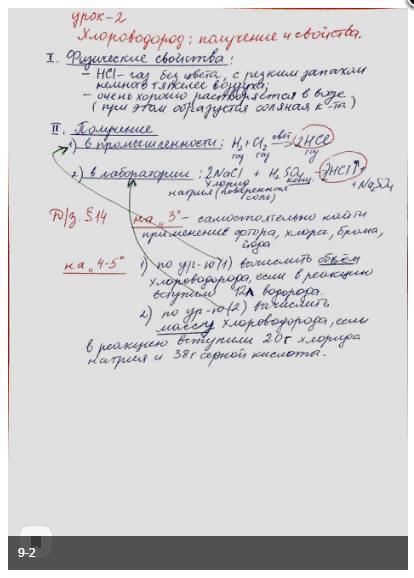 урок-2
Хлороводород: получение и свойства.
I. Физические свойства:
- HCl - газ без цвета, с резким запахом
немного тяжелее воздуха;
- очень хорошо растворяется в воде
(при этом образуется соляная к-та)
II. Получение
1) в промышленности: H₂ + Cl₂ свет → 2HCl
газ газ газ
2) в лаборатории: 2NaCl + H₂SO₄ конц. → 2HCl↑ +
хлорид + Na₂SO₄
натрия (поваренная
соль)
Д/з. §14 на „3" - самостоятельно найти
применение фтора, хлора, брома,
иода.
на „4-5" 1) по ур-ю (1) вычислить объём
хлороводорода, если в реакцию
вступило 12л водорода.
2) по ур-ю (2) вычислить
массу хлороводорода, если
в реакцию вступили 20г хлорида
натрия и 38г серной кислоты.
9-2